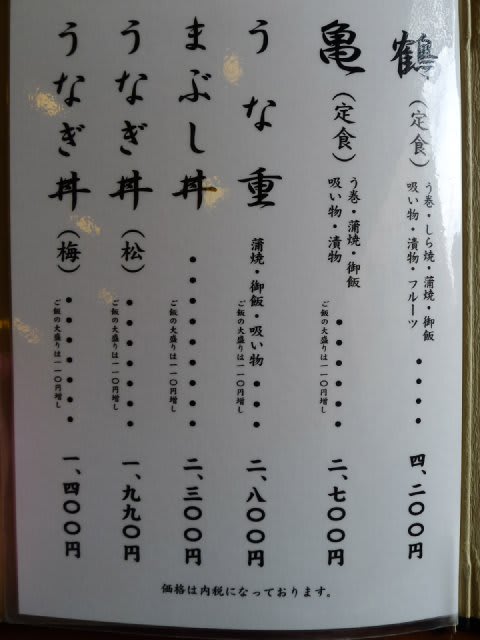 鶴(定食)
う巻・しら焼・蒲焼・御飯
吸い物・漬物・フルーツ
・・・・
四、二〇〇円
亀(定食)
う巻・蒲焼・御飯
吸い物・漬物
・・・・・・
ご飯の大盛りは一一〇円増し
二、七〇〇円
うな重
蒲焼・御飯・吸い物・・・
ご飯の大盛りは一一〇円増し
二、八〇〇円
まぶし丼・・・・・・・・・
ご飯の大盛りは一一〇円増し
二、三〇〇円
うなぎ丼(松)・・・・・・・
ご飯の大盛りは一一〇円増し
一、九九〇円
うなぎ丼(梅)・・・・・・・
ご飯の大盛りは一一〇円増し
一、四〇〇円
価格は内税になっております。